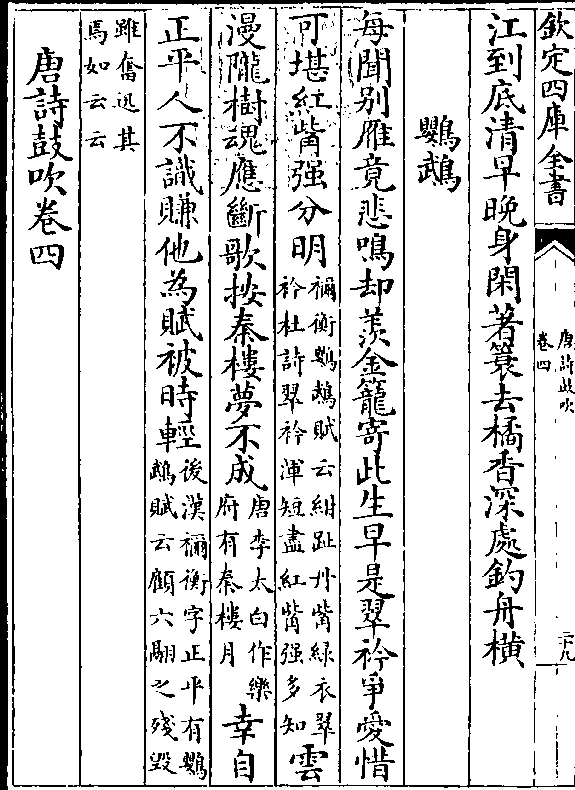 欽定四庫全書
唐詩鼓吹
卷四
二十九
江到底清早晚身閑著簑去橘香深處釣舟橫
鸚鵡
每聞别雁竟悲鳴却羡金籠寄此生早是翠衿爭愛惜
可堪紅觜强分明
禰衡鸚鵡賦云紺趾丹觜緑衣翠
衿杜詩翠衿渾短盡紅觜强多知
雲
漫隴樹魂應斷歌按秦樓夢不成
唐李太白作樂
府有秦樓月
幸自
正平人不識賺他為賦被時輕
後漢禰衡字正平有鸚
鵡賦云顧六翮之殘毁
雖奮迅其
焉如云云
唐詩鼓吹卷四